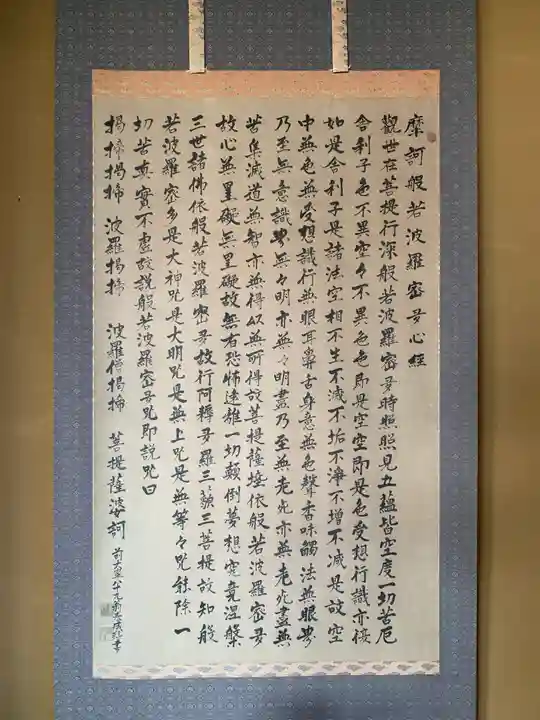 摩訶般若波羅密多心経
觀世在菩提行深般若波羅密多時照照見五蘊皆空度一切苦厄
舎利子色不異空々不異色色即是空空即是色受想行識亦復
如是舎利子是諸法空相不生不滅不垢不淨不增不减是故空
中無色無受想識行無眼耳鼻舌身意無色聲香味觸法無眼界
乃至無意識界無々明亦無々明盡乃至無老死亦無老死盡無
苦集滅道無智亦無得以無所得故菩提薩埵依般若波羅密多
故心無罣礙無罣礙故無有恐怖遠離一切顛倒夢想究竟涅槃
三世諸佛依般若波羅密多故行阿耨多羅三藐三菩提故知般
若波羅密多是大神咒是大明咒是無上咒是無等々咒能除一
切苦真實不虚故説般若波羅密多咒即説咒曰
揭揥揭揥 波羅揭揥 波羅僧揭揥 菩提薩婆訶